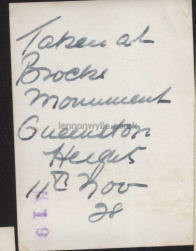 Taken at
Brocks
Monument
Queenston
Heights
11th Nov
28
lennonwylie.co.uk